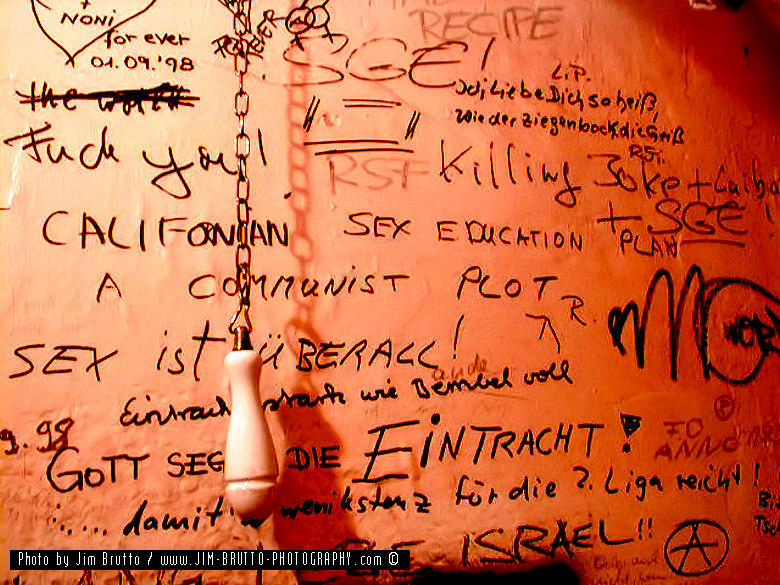 RECIPE
NONI
for ever
01.09.'98
SGE!
L.P.
Ich liebe Dich so heiß,
wie der ziegenbock die Geiß
the world
Fuck you!
RSF Killing Joke +
+ SGE
CALIFONIAN SEX EDUCATION PLAN
A COMMUNIST PLOT
R.
MO
SEX ist ÜBERALL!
wie Bembel voll
9.98
GOTT DIE EINTRACHT!
..... damit wenikstenz für die 2. Liga reicht!
ISRAEL!!
A
Photo by Jim Brutto / www.JIM-BRUTTO-PHOTOGRAPHY.com ©